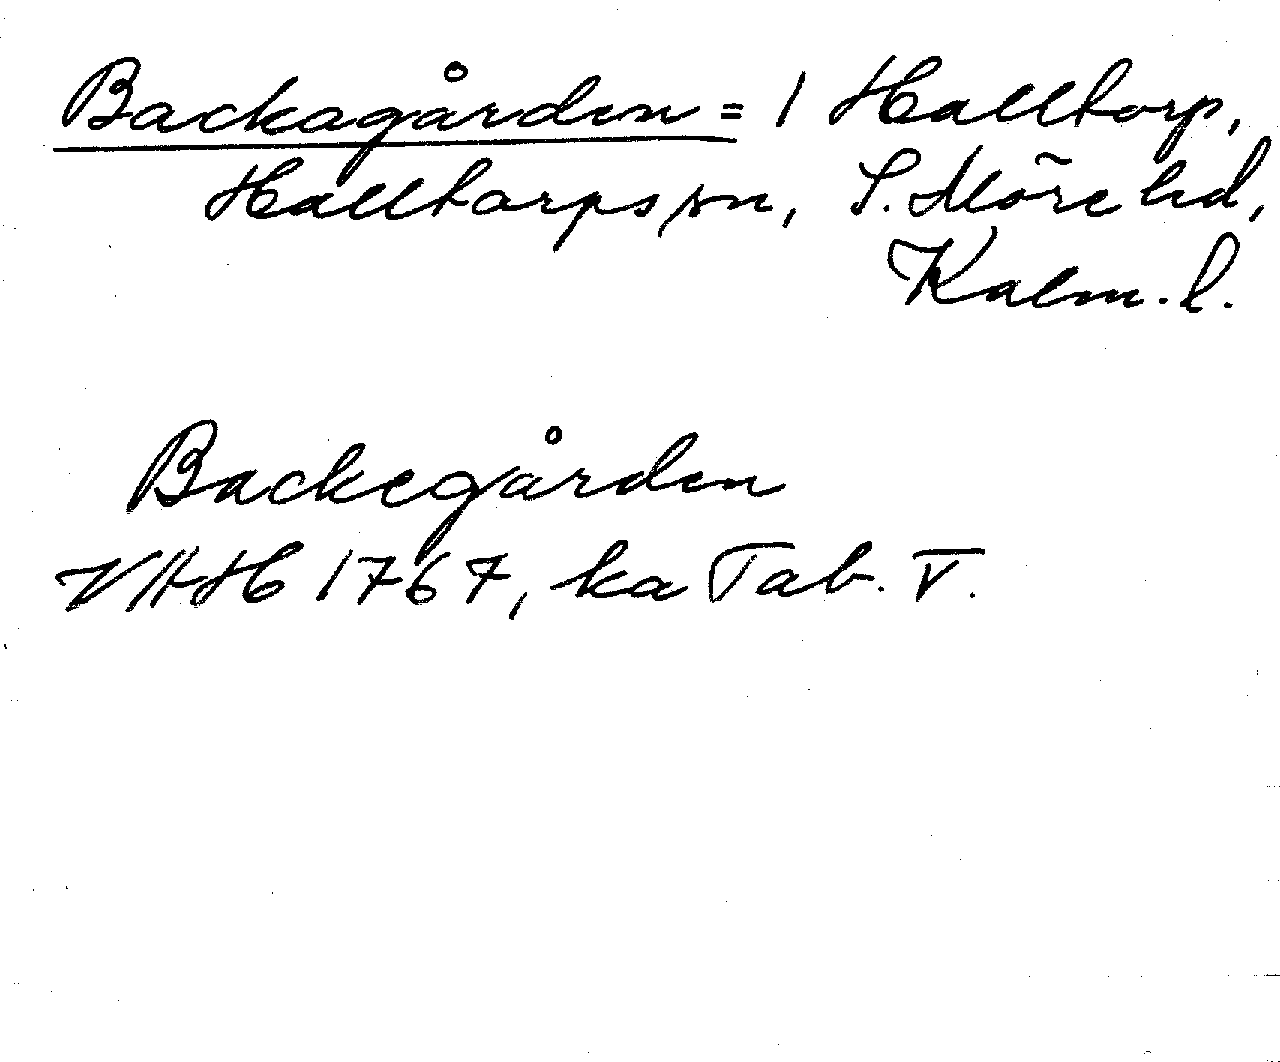 Backagården = 1 Halltorp,
Halltorps sn, S. Möre hd,
Kalm. l.
Backegården
VHAH 1767, ka Tab. V.